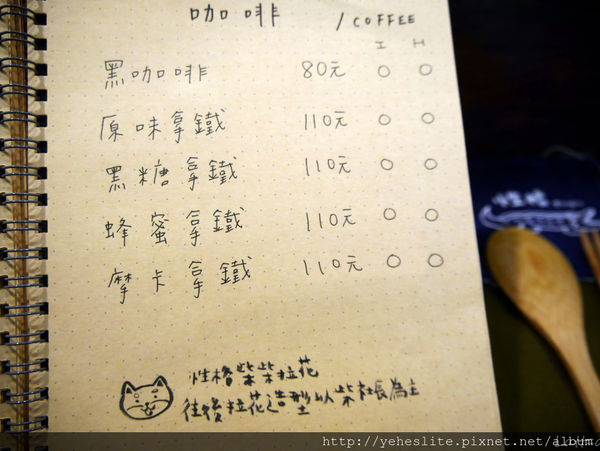 咖啡 / COFFEE
I H
黑咖啡 80元 ○ ○
原味拿鐵 110元 ○ ○
黑糖拿鐵 110元 ○ ○
蜂蜜拿鐵 110元 ○ ○
摩卡拿鐵 110元 ○ ○
柴柴拉花
往後拉花造型以柴社長為主
http://yeheslite.pixnet.net/album